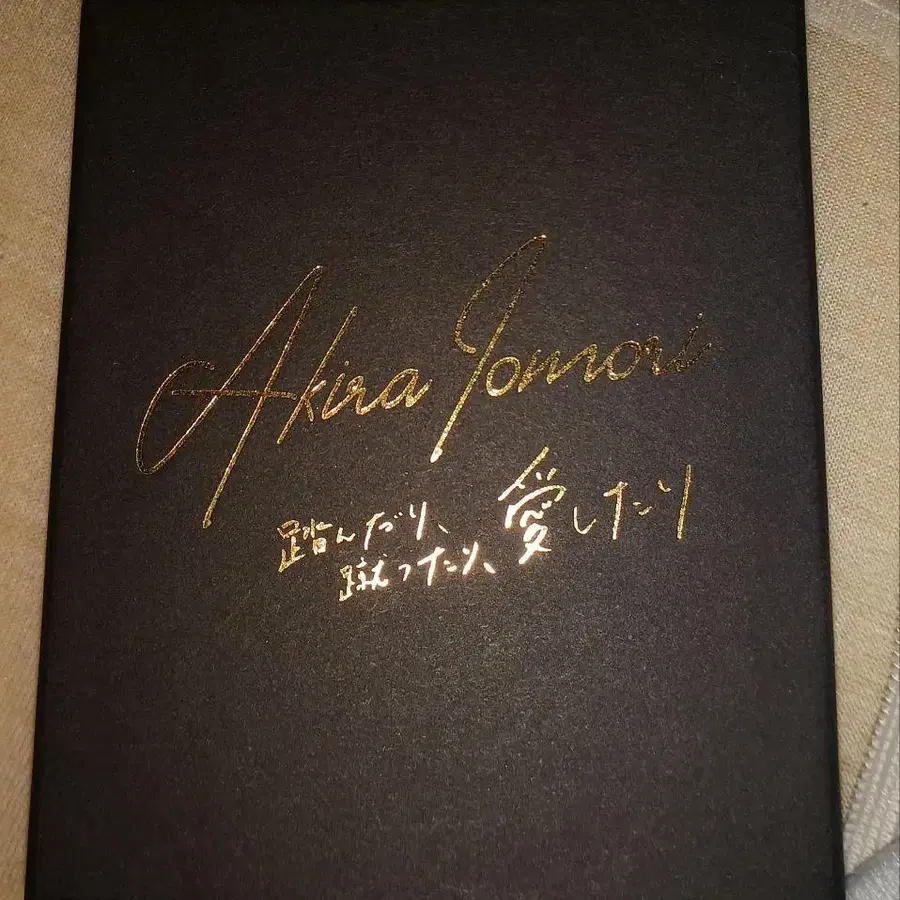 Akira Tomori
踏んだり、
蹴ったり、愛したり